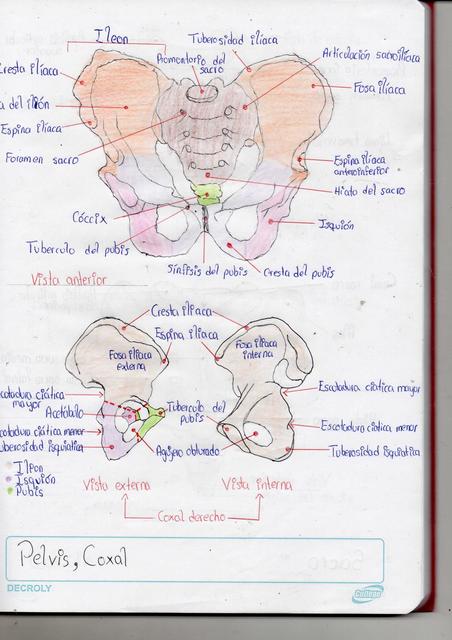 Ileon
Tuberosidad iliaca
Promontorio del
sacro
Articulación sacroiliaca
Cresta iliaca
Fosa iliaca
a del ilión
Espina iliaca
Foramen sacro
Espina iliaca
anteroinferior
Hiato del sacro
Cóccix
Isquión
Tuberculo del pubis
Sínfisis del pubis
Cresta del pubis
Vista anterior
Cresta iliaca
Espina iliaca
Fosa iliaca
externa
Fosa iliaca
interna
Escotadura ciática
mayor
Escotadura ciática mayor
Acetábulo
Tubérculo del
pubis
Escotadura ciática menor
Escotadura ciática menor
Tuberosidad isquiatica
Agujero obturado
Tuberosidad isquiatica
Ileon
Isquión
Pubis
Vista externa
Vista interna
Coxal derecho
Pelvis, Coxal
DECROLY